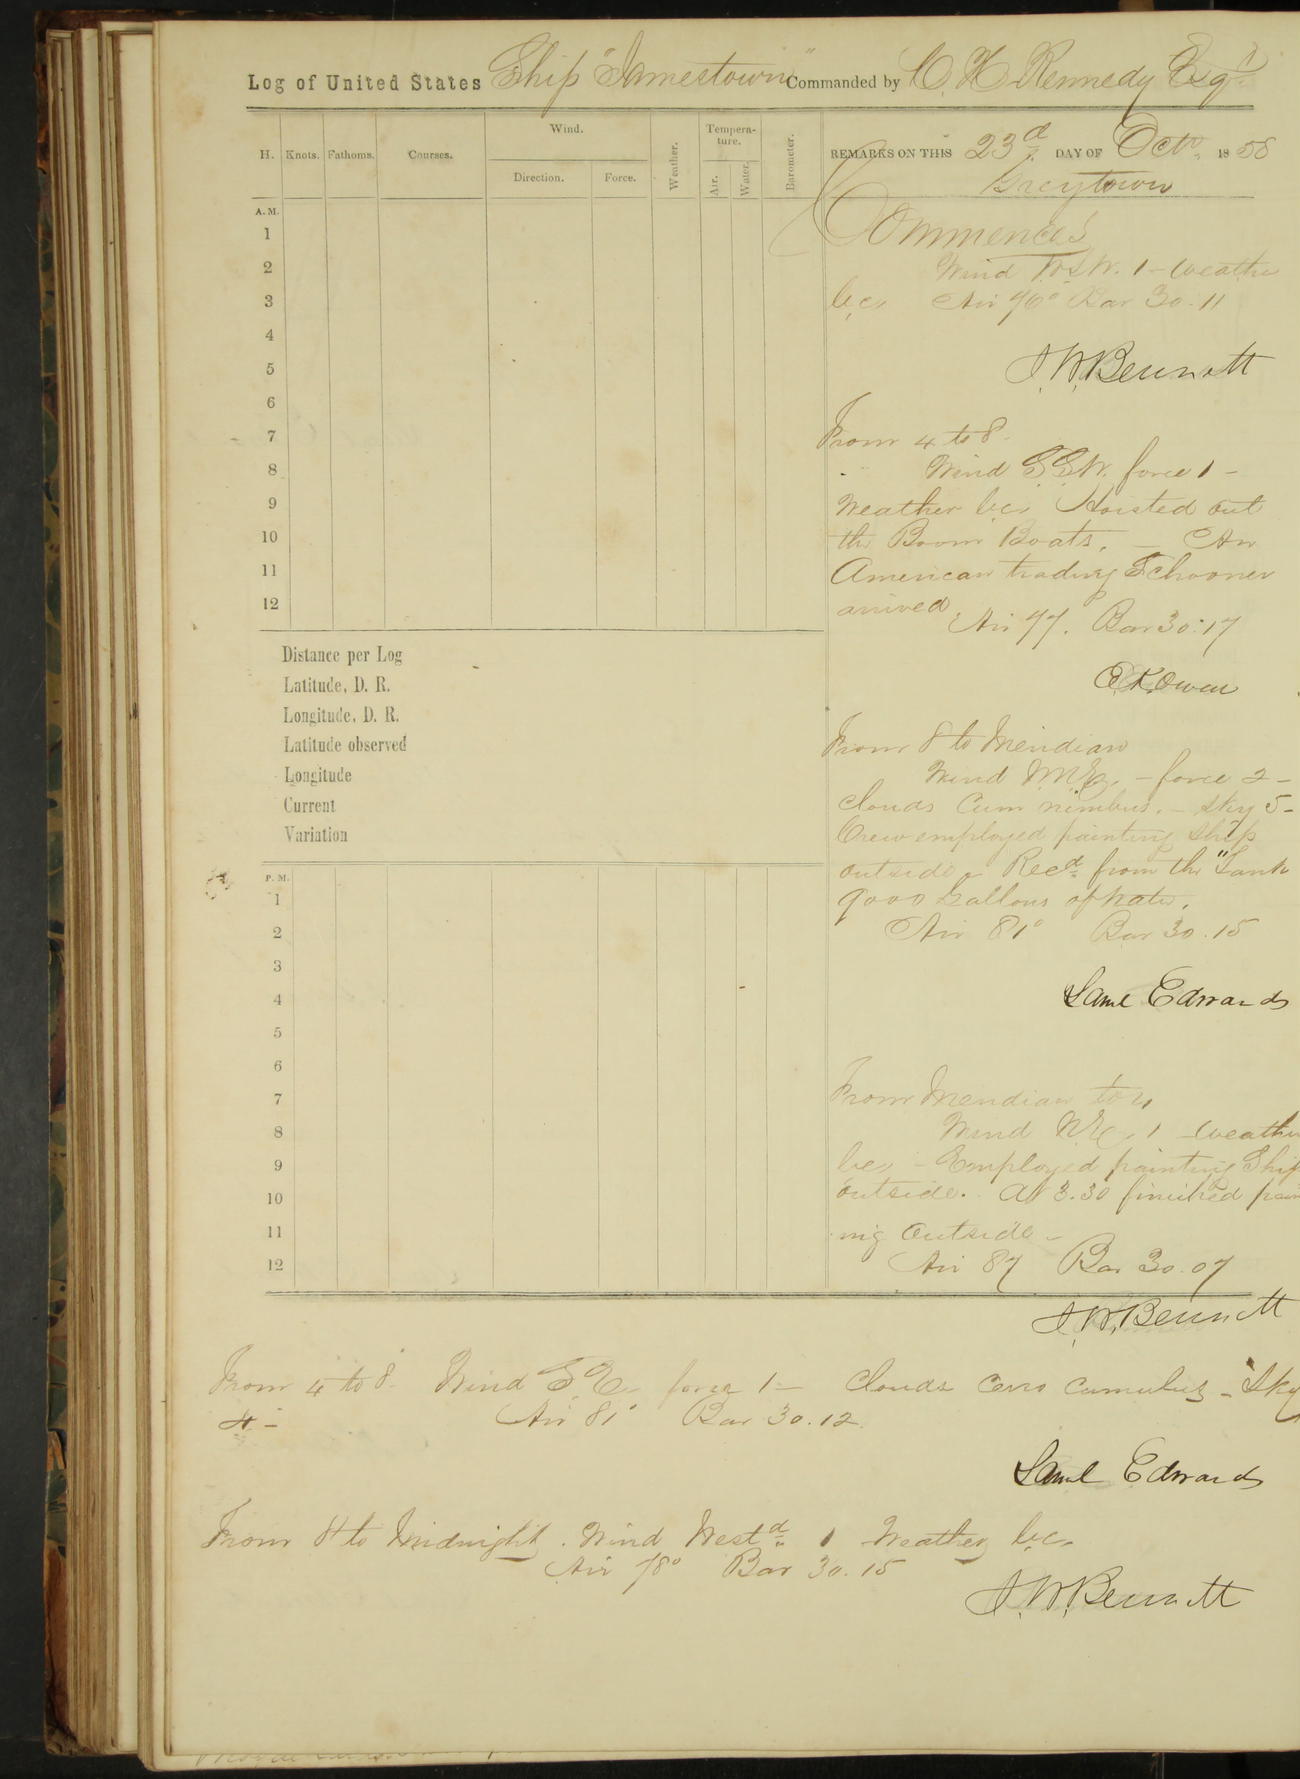 Log of United States Ship "Jamestown" Commanded by C. H. Kennedy Esqr
H. Knots. Fathoms. Courses. Wind. Direction. Force. Weather. Tempera-ture. Air. Water. Barometer.
REMARKS ON THIS 23d DAY OF Octo. 1858
Greytown
A. M.
1
2
3
4
5
6
7
8
9
10
11
12
Distance per Log
Latitude, D. R.
Longitude, D. R.
Latitude observed
Longitude
Current
Variation
P. M.
1
2
3
4
5
6
7
8
9
10
11
12
Commences
Wind W.S.W. 1 - weather
b.c. Air 76° Bar 30.11
J. W. Bennett
From 4 to 8.
Wind S.S.W. force 1 -
Weather b.c. Hoisted out
the Boom Boats. - An
American trading Schooner
arrived
Air 77. Bar 30.17
E. K. Owen
From 8 to Meridian
Wind N.N.E. - force 2 -
clouds Cum nimbus. - sky 5 -
Crew employed painting ship
outside - Recd from the "Tank
9000 Gallons of water.
Air 81° Bar 30.15
Saml Edwards
From Meridian to 4
Wind N.E. 1 - weather
b.c. - Employed painting Ship
outside. At 3.30 finished pain
ing outside -
Air 87 Bar 30.07
J. W. Bennett
From 4 to 8. Wind S.E. force 1 - Clouds cirro cumulus - Sky
4 - Air 81° Bar 30.12.
Saml Edwards
From 8 to Midnight. Wind Westd 1 Weather b.c.
Air 78° Bar 30.15
J. W. Bennett